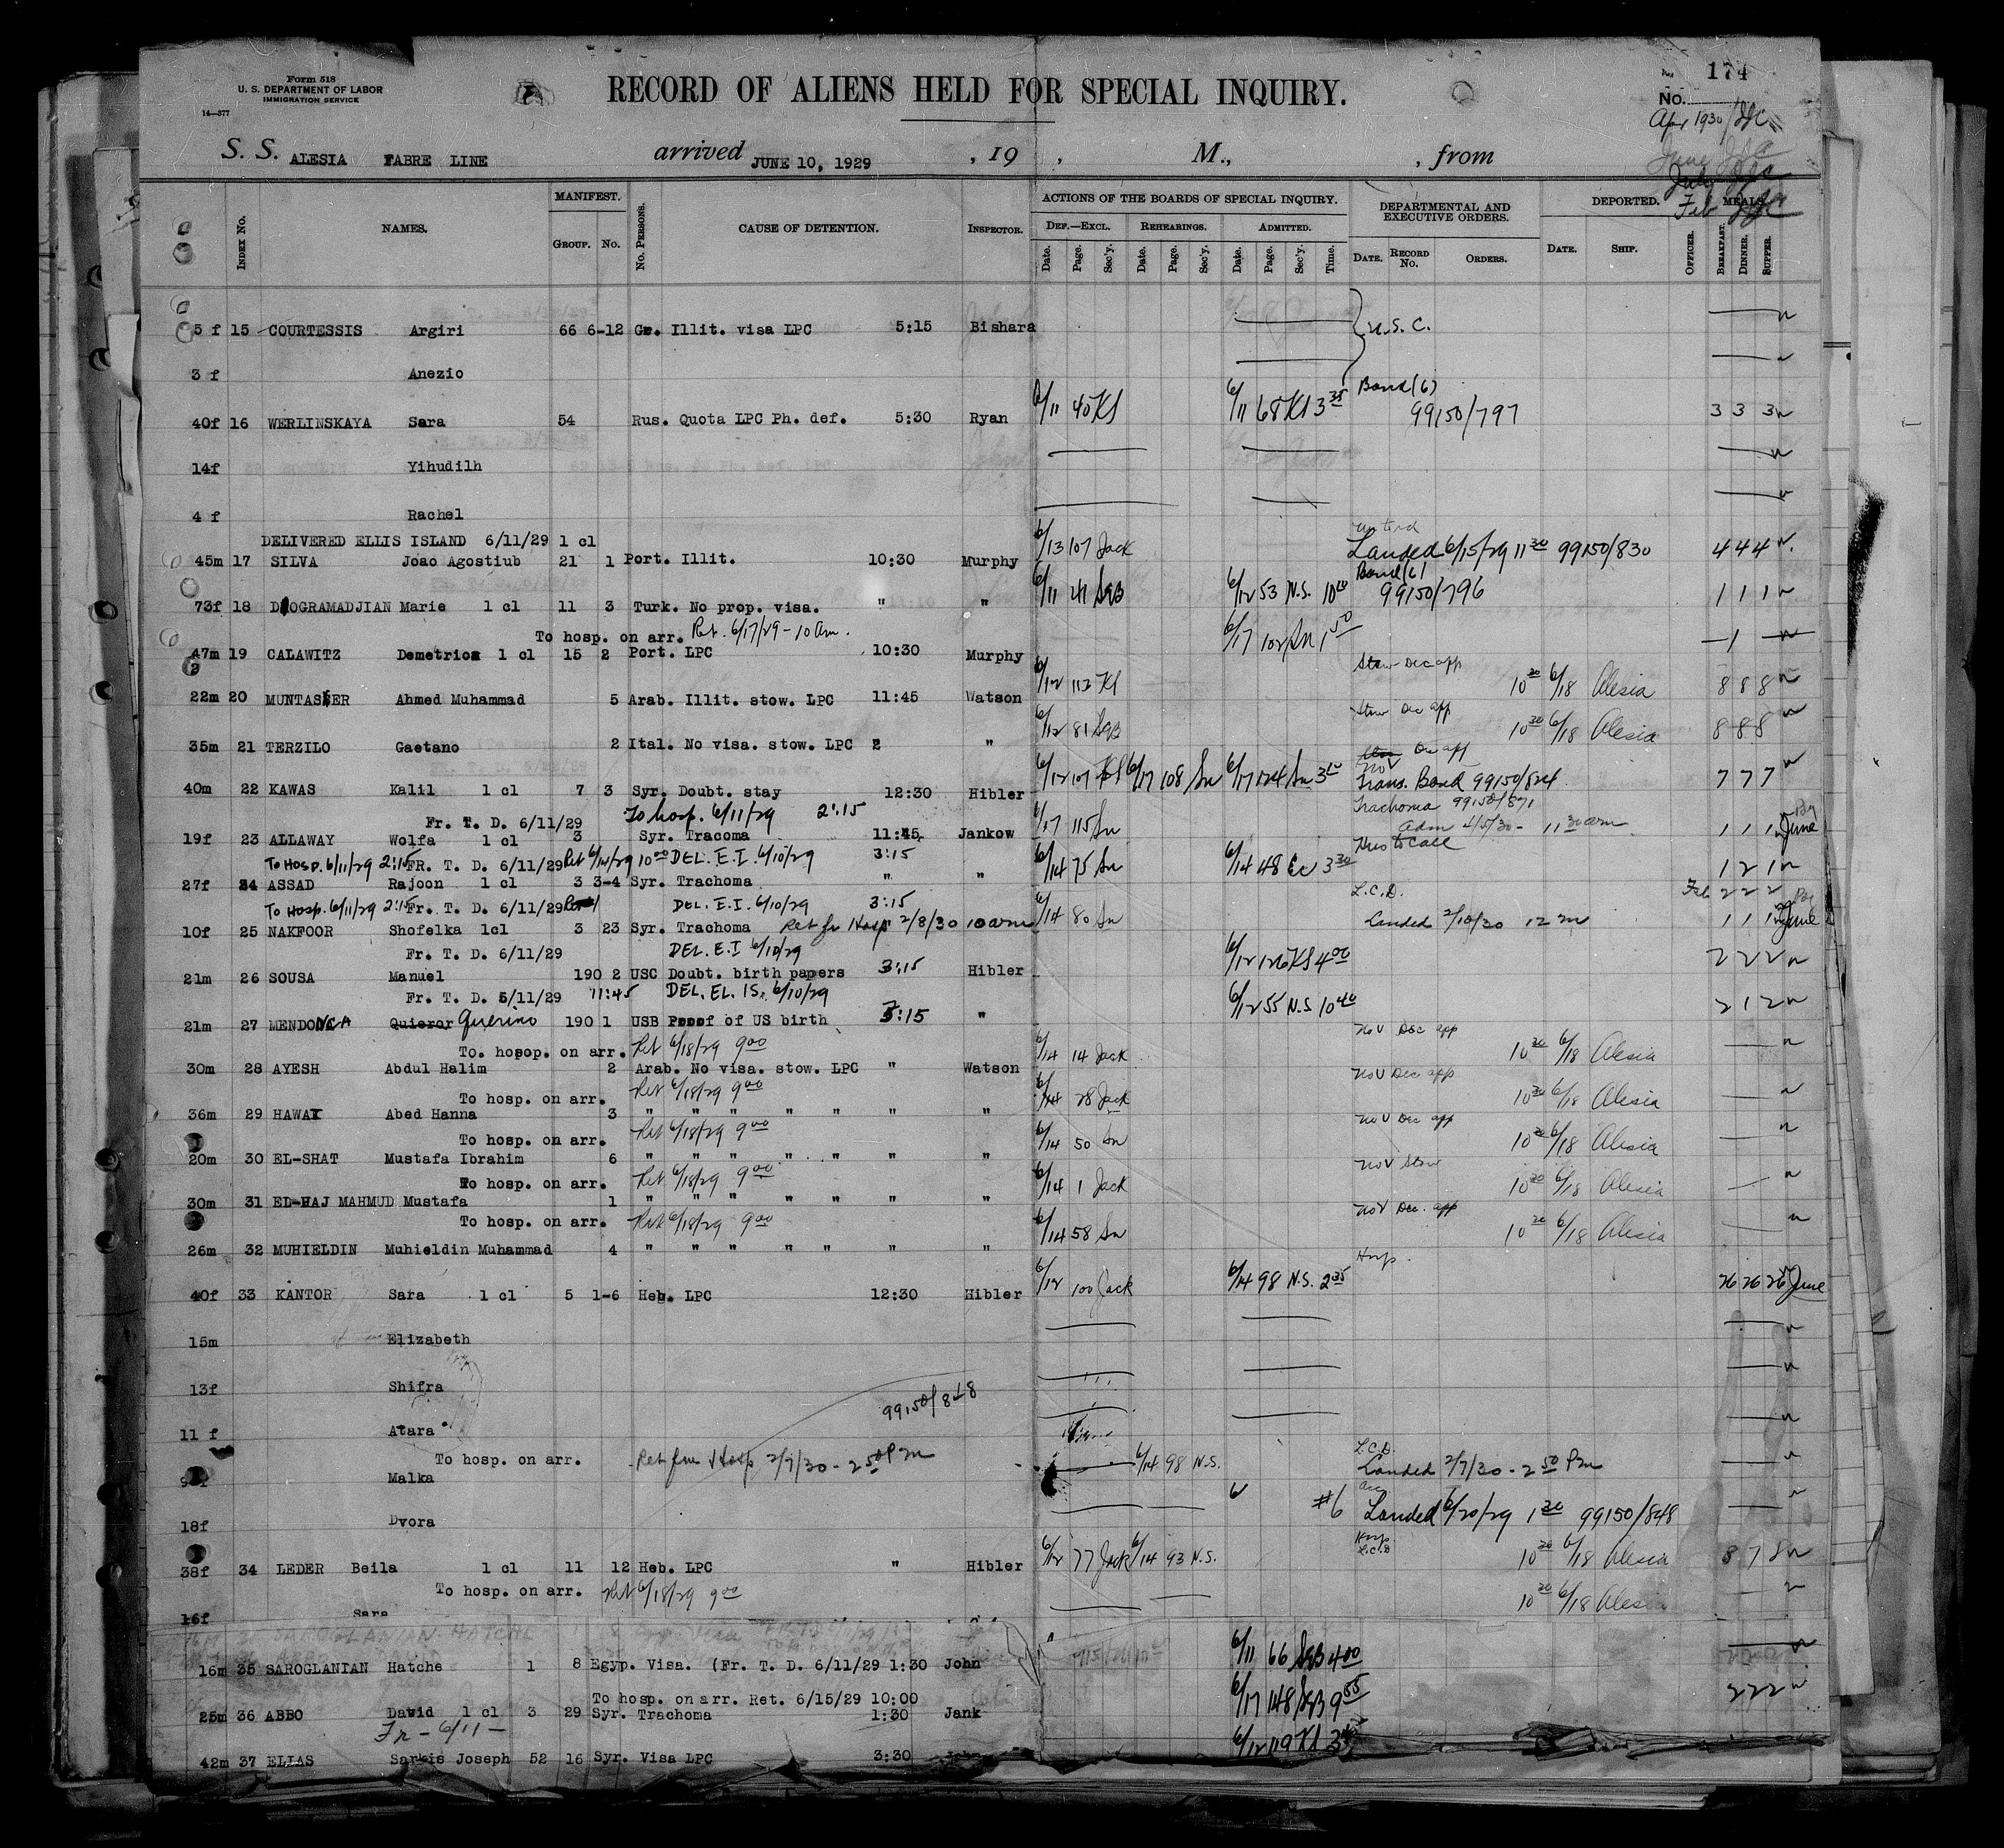 Form 518
U. S. DEPARTMENT OF LABOR
IMMIGRATION SERVICE
14—377
RECORD OF ALIENS HELD FOR SPECIAL INQUIRY.
174
No.
Apr 1930
S. S. ALESIA FABRE LINE arrived JUNE 10, 1929 , 19 , M., , from
July
Feb
INDEX No. NAMES. MANIFEST. GROUP. No. No. PERSONS. CAUSE OF DETENTION. INSPECTOR. ACTIONS OF THE BOARDS OF SPECIAL INQUIRY. DEF.—EXCL. Date. Page. Sec'y. REHEARINGS. Date. Page. Sec'y. ADMITTED. Date. Page. Sec'y. Time. DEPARTMENTAL AND EXECUTIVE ORDERS. DATE. RECORD No. ORDERS. DEPORTED. DATE. SHIP. OFFICER. MEALS. BREAKFAST. DINNER. SUPPER.
5 f 15 COURTESSIS Argiri 66 6-12 Gr. Illit. visa LPC 5:15 Bishara U.S.C.
3 f Anezio
Bond (6)
40f 16 WERLINSKAYA Sara 54 Rus. Quota LPC Ph. def. 5:30 Ryan 6/11 40 KS 6/11 68 KS 3 35 99150/797 3 3 3
14f Yihudilh
4 f Rachel
DELIVERED ELLIS ISLAND 6/11/29 1 cl
45m 17 SILVA Joao Agostiub 21 1 Port. Illit. 10:30 Murphy 6/13 107 Jack Landed 6/15/29 11 30 99150/830 4 4 4
Bond (6)
73f 18 DOGRAMADJIAN Marie 1 cl 11 3 Turk. No prop. visa. " " 6/11 41 SgB 6/12 53 N.S. 10 00 99150/796 1 1 1
To hosp. on arr. Ret. 6/17/29 - 10 am.
47m 19 CALAWITZ Demetrios 1 cl 15 2 Port. LPC 10:30 Murphy 6/17 102 Sn 1 50 1
2
Stow Dec app
22m 20 MUNTASSER Ahmed Muhammad 5 Arab. Illit. stow. LPC 11:45 Watson 6/12 113 KS 10 30 6/18 Alesia 8 8 8
Stow Dec app
35m 21 TERZILO Gaetano 2 Ital. No visa. stow. LPC 2 " 6/12 81 SgB 10 30 6/18 Alesia 8 8 8
Dec app
Nov
40m 22 KAWAS Kalil 1 cl 7 3 Syr. Doubt. stay 12:30 Hibler 6/12 107 KS 6/17 108 Sn 6/17 124 Sn 3 10 Trans. Bond 99150/824 7 7 7
Fr. T. D. 6/11/29 To hosp. 6/11/29 2:15 Trachoma 99150/871
19f 23 ALLAWAY Wolfa 1 cl 3 Syr. Tracoma 11:45 Jankow 6/17 115 Sn Adm 4/5/30 - 11 30 am 1 1 1 June
To Hosp. 6/11/29 2:15 FR. T. D. 6/11/29 Ret 6/14/29 10 00 DEL. E.I. 6/10/29 3:15 " Hus to call
27f 24 ASSAD Rajoon 1 cl 3 3-4 Syr. Trachoma " " 6/14 75 Sn 6/14 48 Ec 3 30 1 2 1
To Hosp. 6/11/29 2:15 Fr. T. D. 6/11/29 DEL. E.I. 6/10/29 3:15 L.C.D. Feb 2 2 2
10f 25 NAKFOOR Shofelka 1cl 3 23 Syr. Trachoma Ret fr Hosp 2/8/30 10 am 6/14 80 Sn Landed 2/10/30 12 m 1 1 1 June
Fr. T. D. 6/11/29 DEL. E.I 6/10/29
21m 26 SOUSA Manuel 190 2 USC Doubt. birth papers 3:15 Hibler 6/12 126 KS 4 00 2 2 2
Fr. T. D. 6/11/29 11:45 DEL. EL. IS. 6/10/29
21m 27 MENDONCA Quieror Querino 190 1 USB Proof of US birth 3:15 " 6/12 55 N.S 10 40 2 1 2
To. hosop. on arr. Ret 6/18/29 9 00 Nov Dec app
30m 28 AYESH Abdul Halim 2 Arab. No visa. stow. LPC " Watson 6/14 14 Jack 10 30 6/18 Alesia
To hosp. on arr. Ret 6/18/29 9 00 Nov Dec app
36m 29 HAWAY Abed Hanna 3 " " " " " " " 6/14 28 Jack 10 30 6/18 Alesia
To hosp. on arr. Ret 6/18/29 9 00 Nov Dec app
20m 30 EL-SHAT Mustafa Ibrahim 6 " " " " " " " 6/14 50 Sn 10 30 6/18 Alesia
To hosp. on arr. Ret 6/18/29 9 00 Nov Stow
30m 31 EL-HAJ MAHMUD Mustafa 1 " " " " " " " 6/14 1 Jack 10 30 6/18 Alesia
To hosp. on arr. Ret 6/18/29 9 00 Nov Dec. app
26m 32 MUHIELDIN Muhieldin Muhammad 4 " " " " " " " 6/14 58 Sn 10 30 6/18 Alesia
Hosp.
40f 33 KANTOR Sara 1 cl 5 1-6 Heb. LPC 12:30 Hibler 6/12 100 Jack 6/14 98 N.S. 2 35 26 26 26 June
15m Elizabeth
13f Shifra
99150/848
11 f Atara
To hosp. on arr. Ret frm Hosp 2/7/30 - 2 50 Pm 6/14 98 N.S. L.C.D.
9 f Malka Landed 2/7/30 - 2 50 Pm
18f Dvora #6 Landed 6/20/29 1 30 99150/848
Hosp
L.C.D
38f 34 LEDER Beila 1 cl 11 12 Heb. LPC " Hibler 6/12 77 Jack 6/14 93 N.S. 10 30 6/18 Alesia 8 7 8
To hosp. on arr. Ret 6/18/29 9 00
16f Sara 10 30 6/18 Alesia
16m 35 SAROGLANIAN Hatche 1 8 Egyp. Visa. (Fr. T. D. 6/11/29 1:30 John 6/11 66 SgB 4 00
To hosp. on arr. Ret. 6/15/29 10:00
25m 36 ABBO David 1 cl 3 29 Syr. Trachoma 1:30 Jank 6/17 148 SgB 9 55 2 2 2
Fr - 6/11 -
42m 37 ELIAS Sarkis Joseph 52 16 Syr. Visa LPC 3:30 John 6/12 119 KS